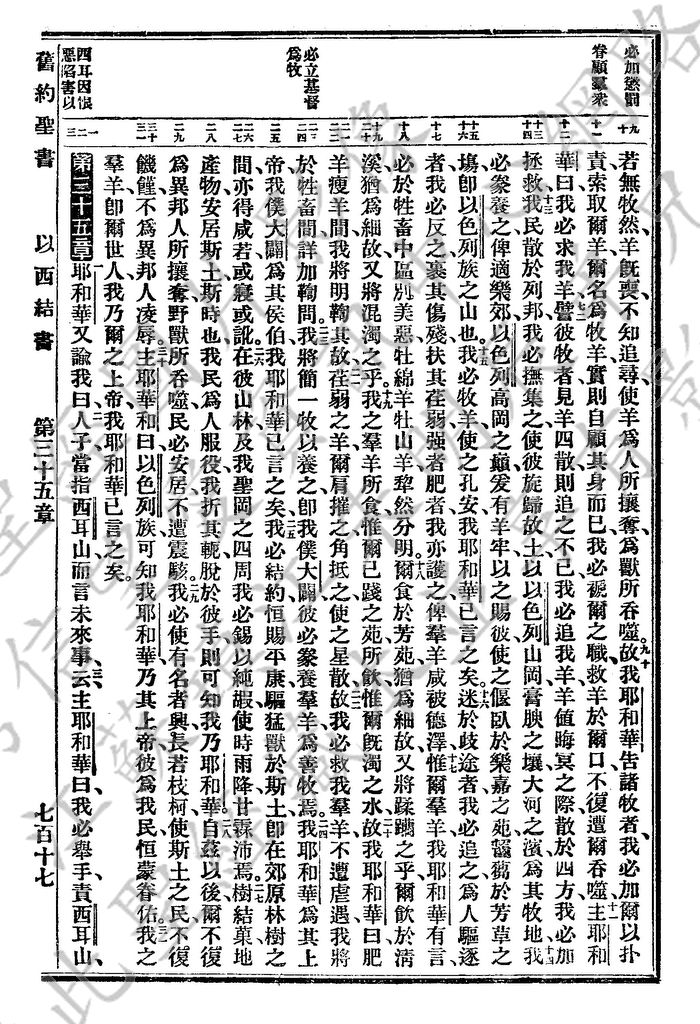 必加懲罰
眷顧羣衆
必立基督爲牧
西耳因恨惡陷害以
若無牧然羊旣喪不知追尋使羊爲人所攘奪爲獸所吞噬故我耶和華告諸牧者我必加爾以扑
責索取爾羊爾名爲牧羊實則自顧其身而已我必褫爾之職救羊於爾口不復遭爾吞噬主耶和
華曰我必求我羊譬彼牧者見羊四散則追之不已我必追我羊値晦冥之際散於四方我必加
拯救我民散於列邦我必撫集之使彼旋歸故土以以色列山岡膏腴之壤大河之濱爲其牧地我
必豢養之俾適樂郊以色列高岡之巔爰有羊牢以之賜彼使之偃臥於樂嘉之苑齧芻於芳草之
塲卽以色列族之山也我必牧羊使之孔安我耶和華已言之矣迷於歧途者我必追之爲人驅逐
者我必反之裹其傷殘扶其荏弱强者肥者我亦護之俾羣羊咸被德澤惟爾羣羊我耶和華有言
必於牲畜中區別美惡牡綿羊牡山羊犂然分明爾食於芳苑猶爲細故又將蹂躪之乎爾飮於淸
溪猶爲細故又將混濁之乎我之羣羊所食惟爾已踐之苑所飮惟爾旣濁之水故我耶和華曰肥
羊瘦羊間我將明鞫其故荏弱之羊爾肩摧之角抵之使之星散故我必救我羣羊不遭虐遇我將
於牲畜間詳加鞫問我將簡一牧以養之卽我僕大闢彼必豢養羣羊爲善牧焉我耶和華爲其上
帝我僕大闢爲其侯伯我耶和華已言之矣我必結約恒賜平康驅猛獸於斯土卽在郊原林樹之
間亦得咸若或寢或訛在彼山林及我聖岡之四周我必錫以純嘏使時雨降甘霖沛焉樹結菓地
產物安居斯土斯時也我民爲人服役我折其軛脫於彼手則可知我乃耶和華自茲以後爾不復
爲異邦人所攘奪野獸所吞噬民必安居不遭震駭我必使有名者興長若枝柯使斯土之民不復
饑饉不爲異邦人凌辱主耶華和曰以色列族可知我耶和華乃其上帝彼爲我民恒蒙眷佑我之
羣羊卽爾世人我乃爾之上帝我耶和華已言之矣
第三十五章耶和華又諭我曰人子當指西耳山而言未來事云主耶和華曰我必舉手責西耳山
舊約聖書 以西結書 第三十五章 七百十七